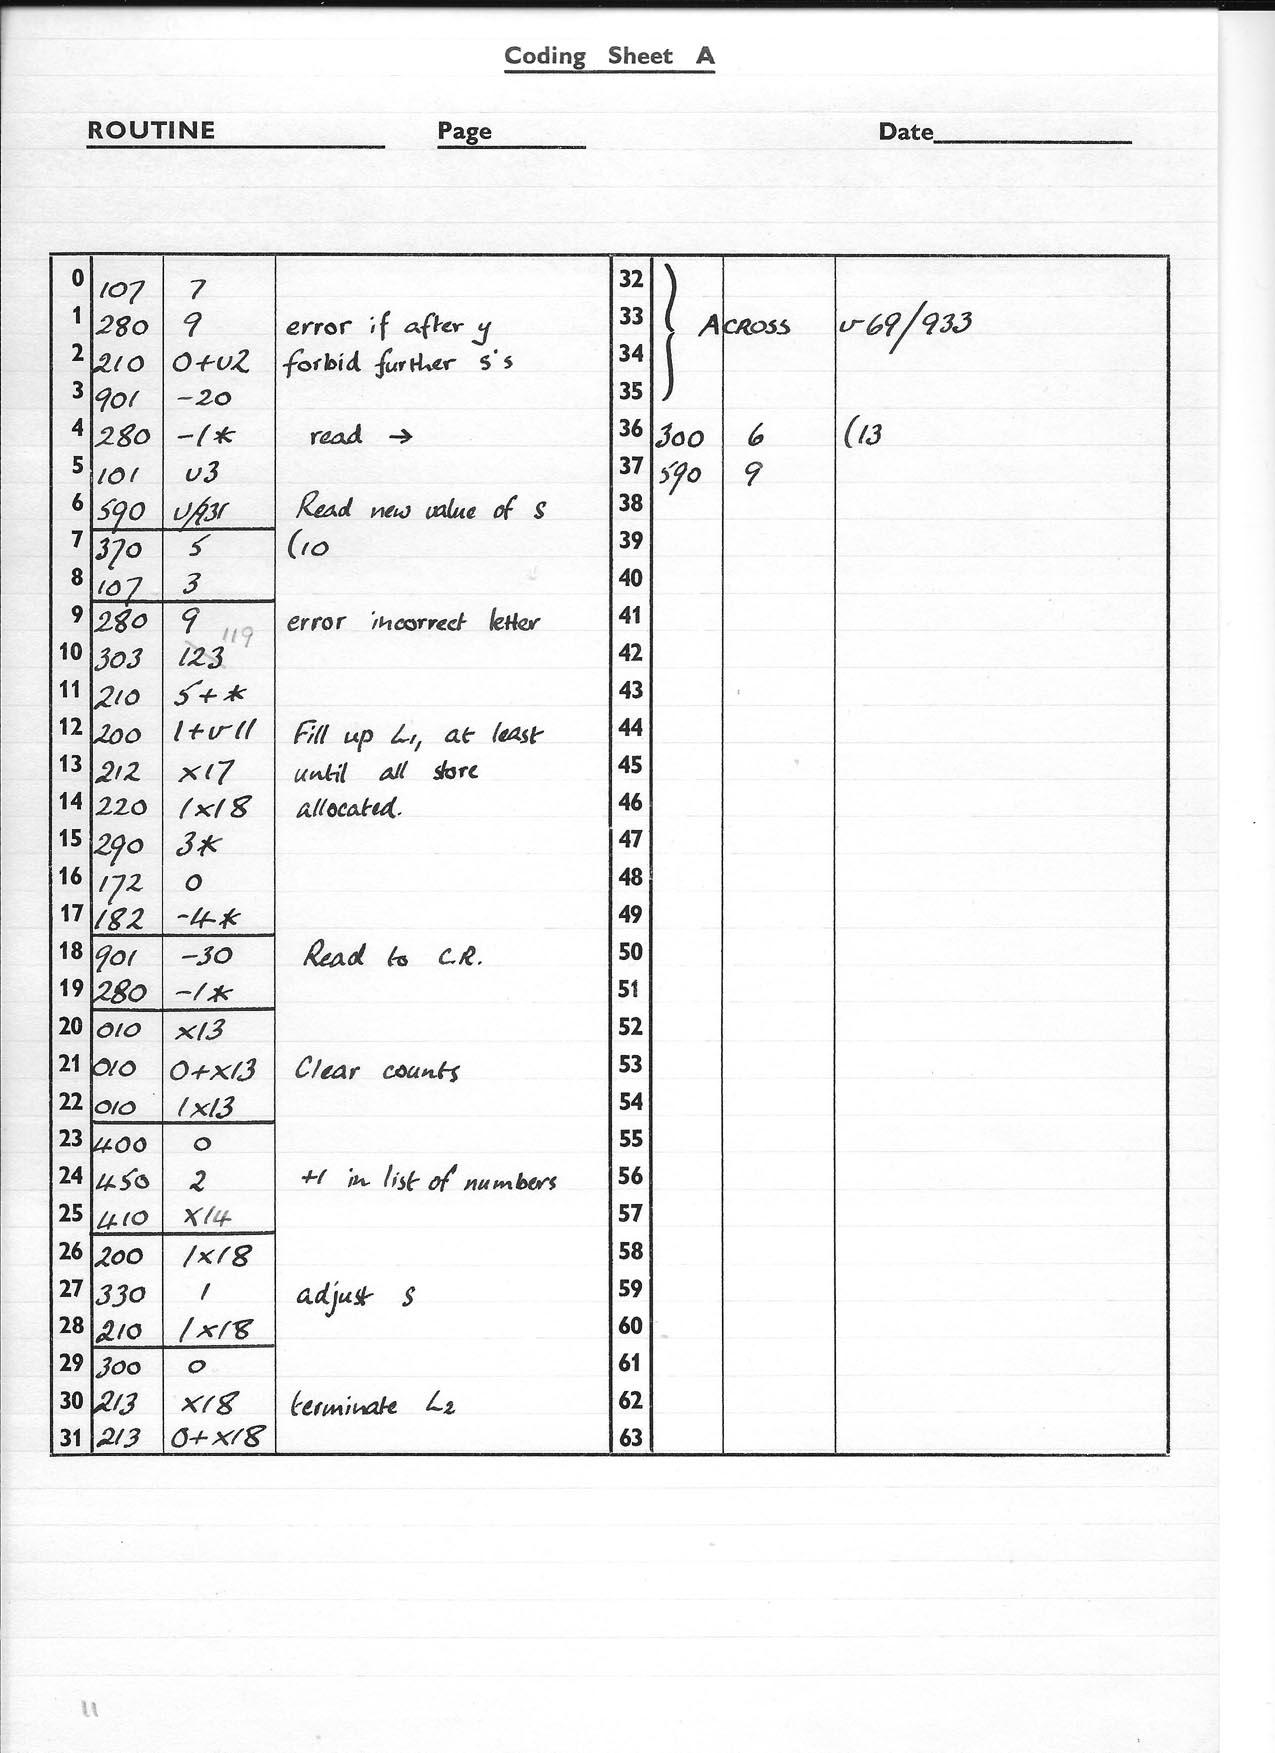 Coding Sheet A
ROUTINE Page Date
0 107 7
1 280 9 error if after y
2 210 0+v2 forbid further s's
3 901 -20
4 280 -1* read →
5 101 v3
6 590 Read new value of s
7 370 5 (10
8 107 3
9 280 9 error incorrect letter
119
10 303 123
11 210 5+*
12 200 1+v11 Fill up L1, at least
13 212 x17 until all store
14 220 1x18 allocated.
15 290 3*
16 172 0
17 182 -4*
18 901 -30 Read to C.R.
19 280 -1*
20 010 x13
21 010 0+x13 Clear counts
22 010 1x13
23 400 0
24 450 2 +1 in list of numbers
25 410 x14
26 200 1x18
27 330 1 adjust s
28 210 1x18
29 300 0
30 213 x18 terminate L2
31 213 0+x18
32
33 ACROSS v69/933
34
35
36 300 6 (13
37 590 9
38
39
40
41
42
43
44
45
46
47
48
49
50
51
52
53
54
55
56
57
58
59
60
61
62
63
11